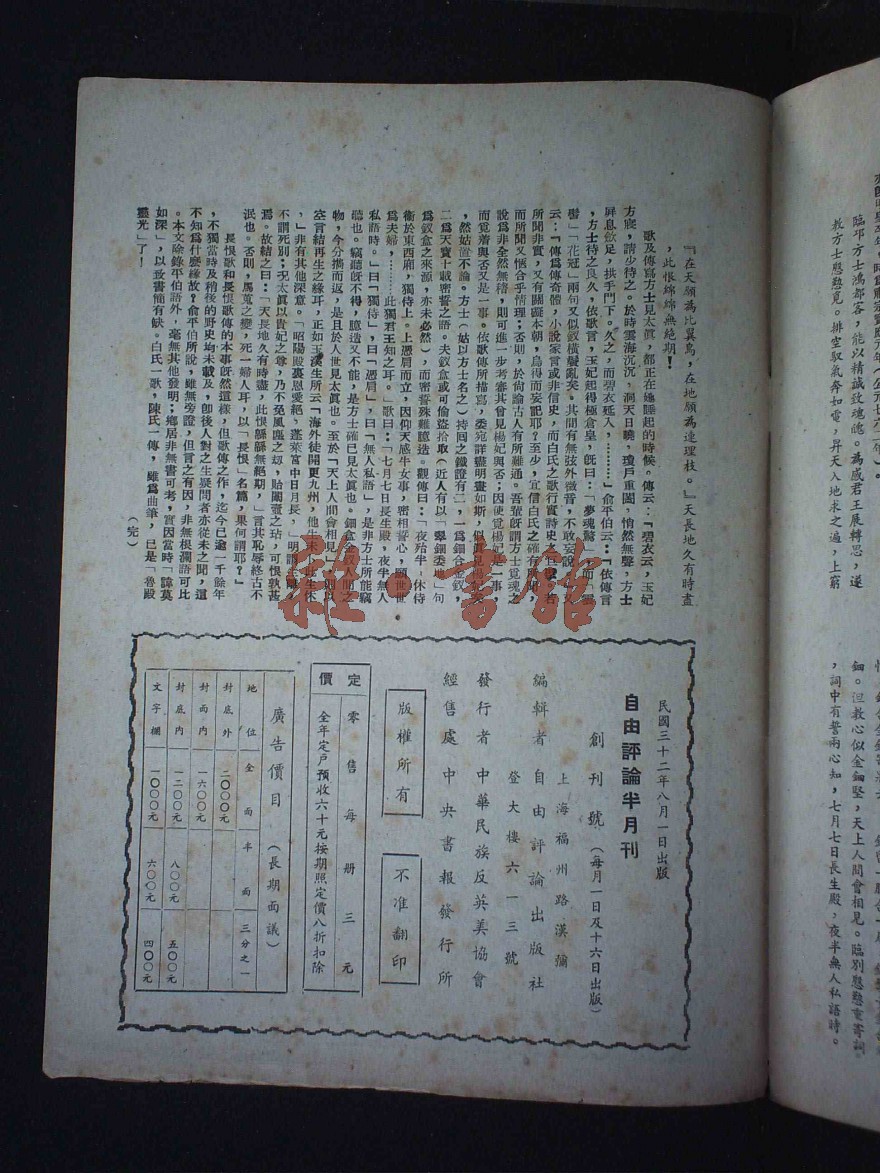 『在天願為比翼鳥，在地願為連理枝。』天長地久有時盡
，此恨綿綿無絕期！
歌及傳寫方士見太眞，都正在她睡起的時候。傳云：「碧衣云，玉妃
方寢，請少待之。於時雲海沉沉，洞天日曉，瓊戶重闔，悄然無聲，方士
屏息斂足，拱手門下。久之，而碧衣延入，………」俞平伯云：「依傳言
，方士待之良久，依歌言，玉妃起得極倉皇，旣曰：「夢魂驚」，而「雲
鬢」「花冠」兩句又似釵橫鬢亂矣。其間有無弦外微音，不敢妄說
云：「傳爲傳奇體，小說家言或非信史，而白氏之歌行實詩史之
所聞非實，又有關礙本朝，烏得而妄記耶？至少，宜信白氏之確有所聞，
而所聞又愜合乎情理；否則，於尙論古人有所難通。吾輩旣謂方士覓魂之
說爲非全然無稽，則可進一步考審其曾見楊妃與否；因使覓楊妃是一事，
而覓着與否又是一事。依歌傳所描寫，委宛詳盡明晝如斯，似眞見楊
，然姑置不論。方士（姑以方士名之）持回之鐵證有二，一爲鈿合金釵，
二爲天寶十載密誓之語。夫釵盒或可偷盜拾取（近人有以「翠鈿委地」句
爲釵盒之來源，亦未必然），而密誓殊難臆造。觀傳曰：「夜殆半，休侍
衞於東西廂，獨侍上。上憑肩而立，因仰天感牛女事，密相誓心，願世世
爲夫婦，………此獨君王知之耳。」歌曰：「七月七日長生殿，夜半無人
私語時。」曰「獨侍」，曰「憑肩」，曰「無人私語」，是非方士所能竊
聽也。竊聽旣不得，臆造又不能，是方士確已見太眞也。鈿盒金釵人間之
物，今分攜而返，是且於人世見太眞也。至於「天上人間會相見」則以
空言結再生之緣耳，正如玉溪生所云「海外徒聞更九州，他生未卜此生休
」，非有其他深意。「昭陽殿裏恩愛絕，蓬萊宮中日月長」，明謂生離
不謂死別；況太眞以貴妃之尊，乃不免風塵之刼，貽闈壼之玷，可恨孰甚
焉。故結之曰：「天長地久有時盡，此恨緜緜無絕期」，言其恥辱終古不
泯也。否則，馬嵬之變，死一婦人耳，以「長恨」名篇，果何謂耶？」
長恨歌和長恨歌傳的本事旣然這樣，但歌傳之作，迄今已逾一千餘年
，不獨當時及稍後的野史均未載及，卽後人對之生疑問者亦從未之聞，這
不知爲什麽緣故？俞平伯所說，雖無旁證，但言之有因，非無根瀾語可比
。本文除錄平伯語外，毫無其他發明；鄉居非無書可考，實因當時「諱莫
如深」，以致書簡有缺。白氏一歌，陳氏一傳，雖爲曲筆，已是「魯殿
靈光」了！
（完）
民國三十二年八月一日出版
自由評論半月刊
創刊號（每月一日及十六日出版）
上海福州路漢彌
編輯者 自由評論出版社
登大樓六一三號
發行者 中華民族反英美協會
經售處 中央書報發行所
版權所有
不准翻印
定價
零售每册三元
全年定戶預收六十元按期照定價八折扣除
廣告價目（長期面議）
地位 全面 半面 三分之一
封底外 二〇〇〇元
封面內 一六〇〇元
封底內 一二〇〇元 八〇〇元 五〇〇元
文字欄 一〇〇〇元 六〇〇元 四〇〇元
臨邛方士鴻都客，能以精誠致魂魄。為感君王展轉思，遂
教方士慇懃覓。排空馭氣奔如電，昇天入地求之遍，上窮
鈿。但教心似金鈿堅，天上人間會相見。臨別慇懃重寄詞
，詞中有誓兩心知，七月七日長生殿，夜半無人私語時。
雜書館